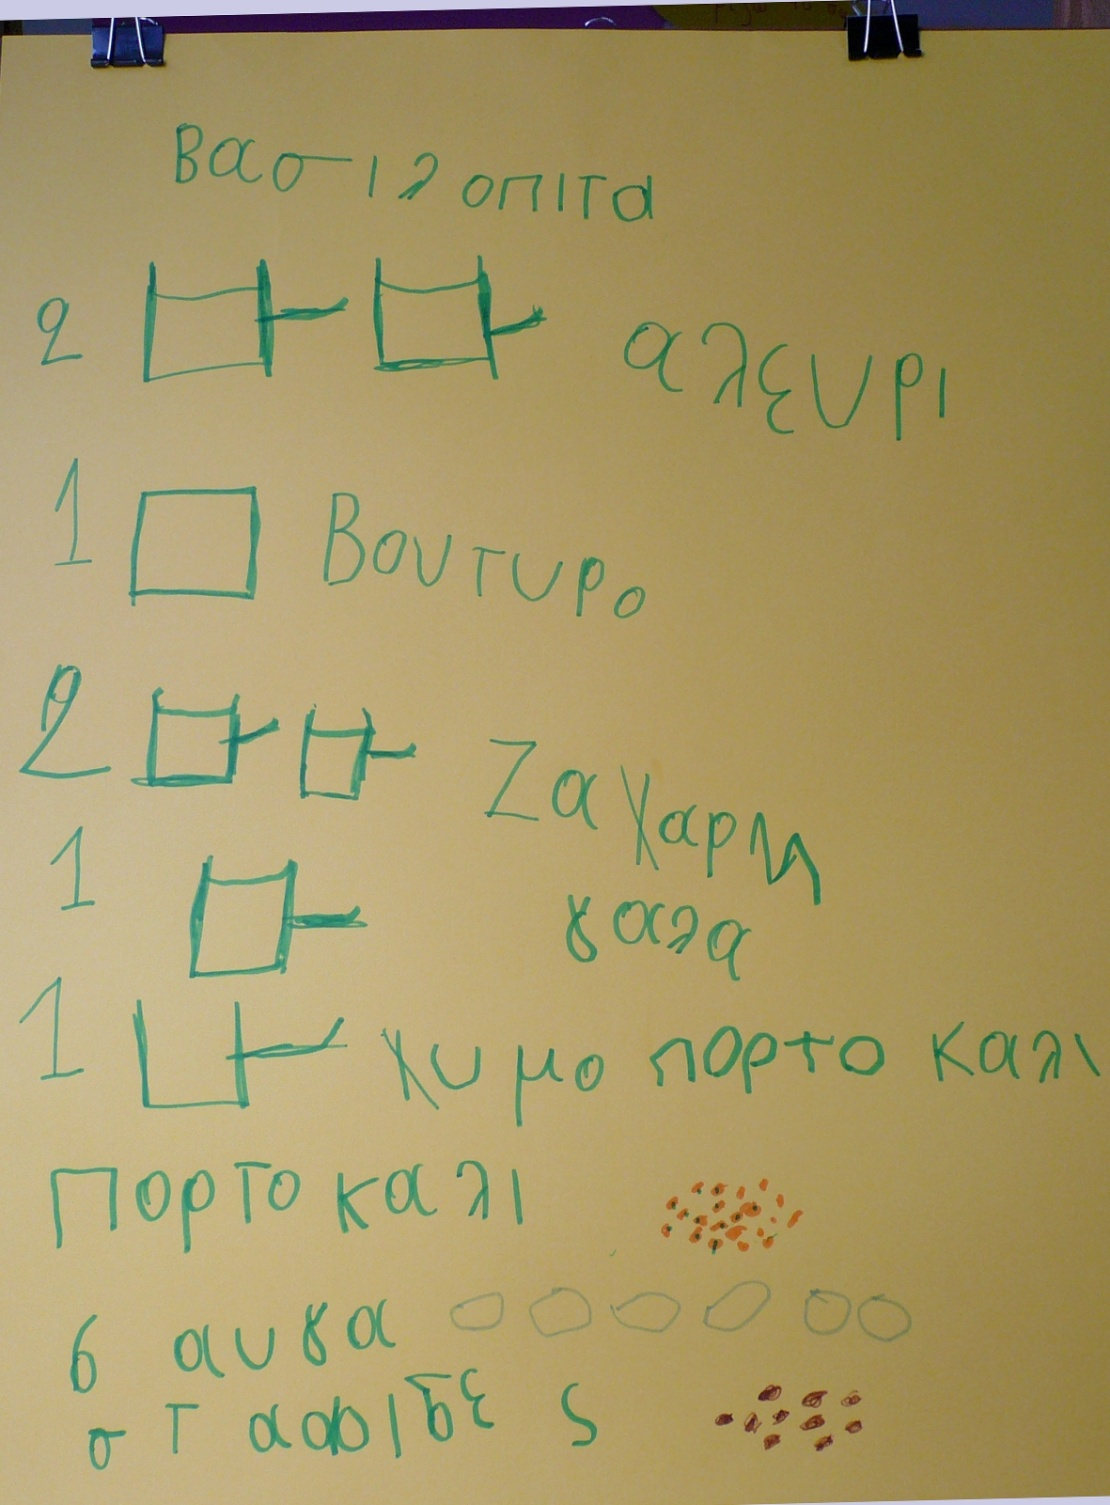 Βασιλοπιτα
2 αλευρι
1 Βουτυρο
2 Ζαχαρη
1 γαλα
1 χυμο πορτο καλι
Πορτο καλι
6 αυγα
σταφιδες